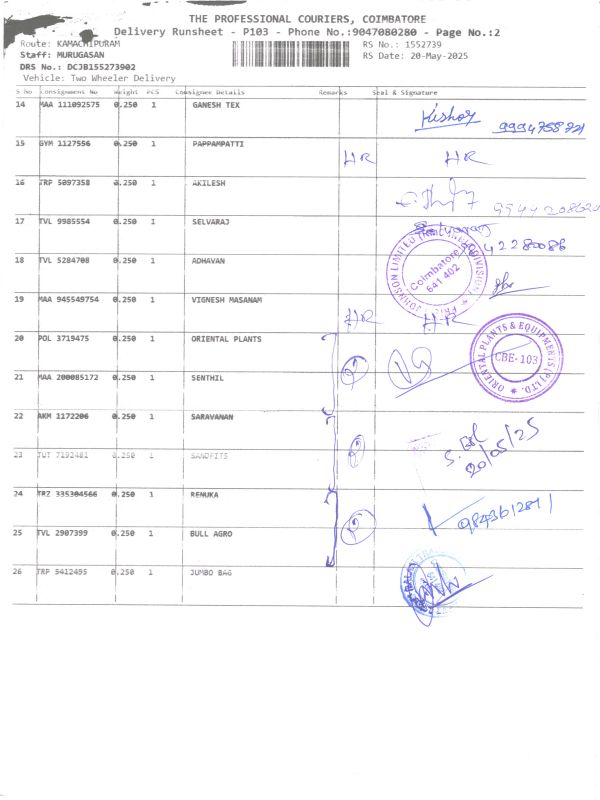 THE PROFESSIONAL COURIERS, COIMBATORE
Delivery Runsheet - P103 - Phone No.:9047080280 - Page No.:2
Route: KAMACHIPURAM RS No.: 1552739
Staff: MURUGASAN RS Date: 20-May-2025
DRS No.: DCJB155273902
Vehicle: Two Wheeler Delivery
S No Consignment No Weight PCS Consignee Details Remarks Seal & Signature
14 MAA 111092575 0.250 1 GANESH TEX Kishor
15 GYM 1127556 0.250 1 PAPPAMPATTI HR HR
16 TRP 5097358 0.250 1 AKILESH
17 TVL 9985554 0.250 1 SELVARAJ
18 TVL 5284708 0.250 1 ADHAVAN
Coimbatore
641 402
19 MAA 945549754 0.250 1 VIGNESH MASANAM HR HR
20 POL 3719475 0.250 1 ORIENTAL PLANTS
ORIENTAL PLANTS & EQUIPMENTS (P) LTD.
CBE-103
21 MAA 200085172 0.250 1 SENTHIL
22 AKM 1172206 0.250 1 SARAVANAN
20/05/25
23 TUT 7192481 0.250 1 SANDFITS
24 TRZ 335304566 0.250 1 RENUKA
25 TVL 2907399 0.250 1 BULL AGRO
26 TRP 5412495 0.250 1 JUMBO BAG